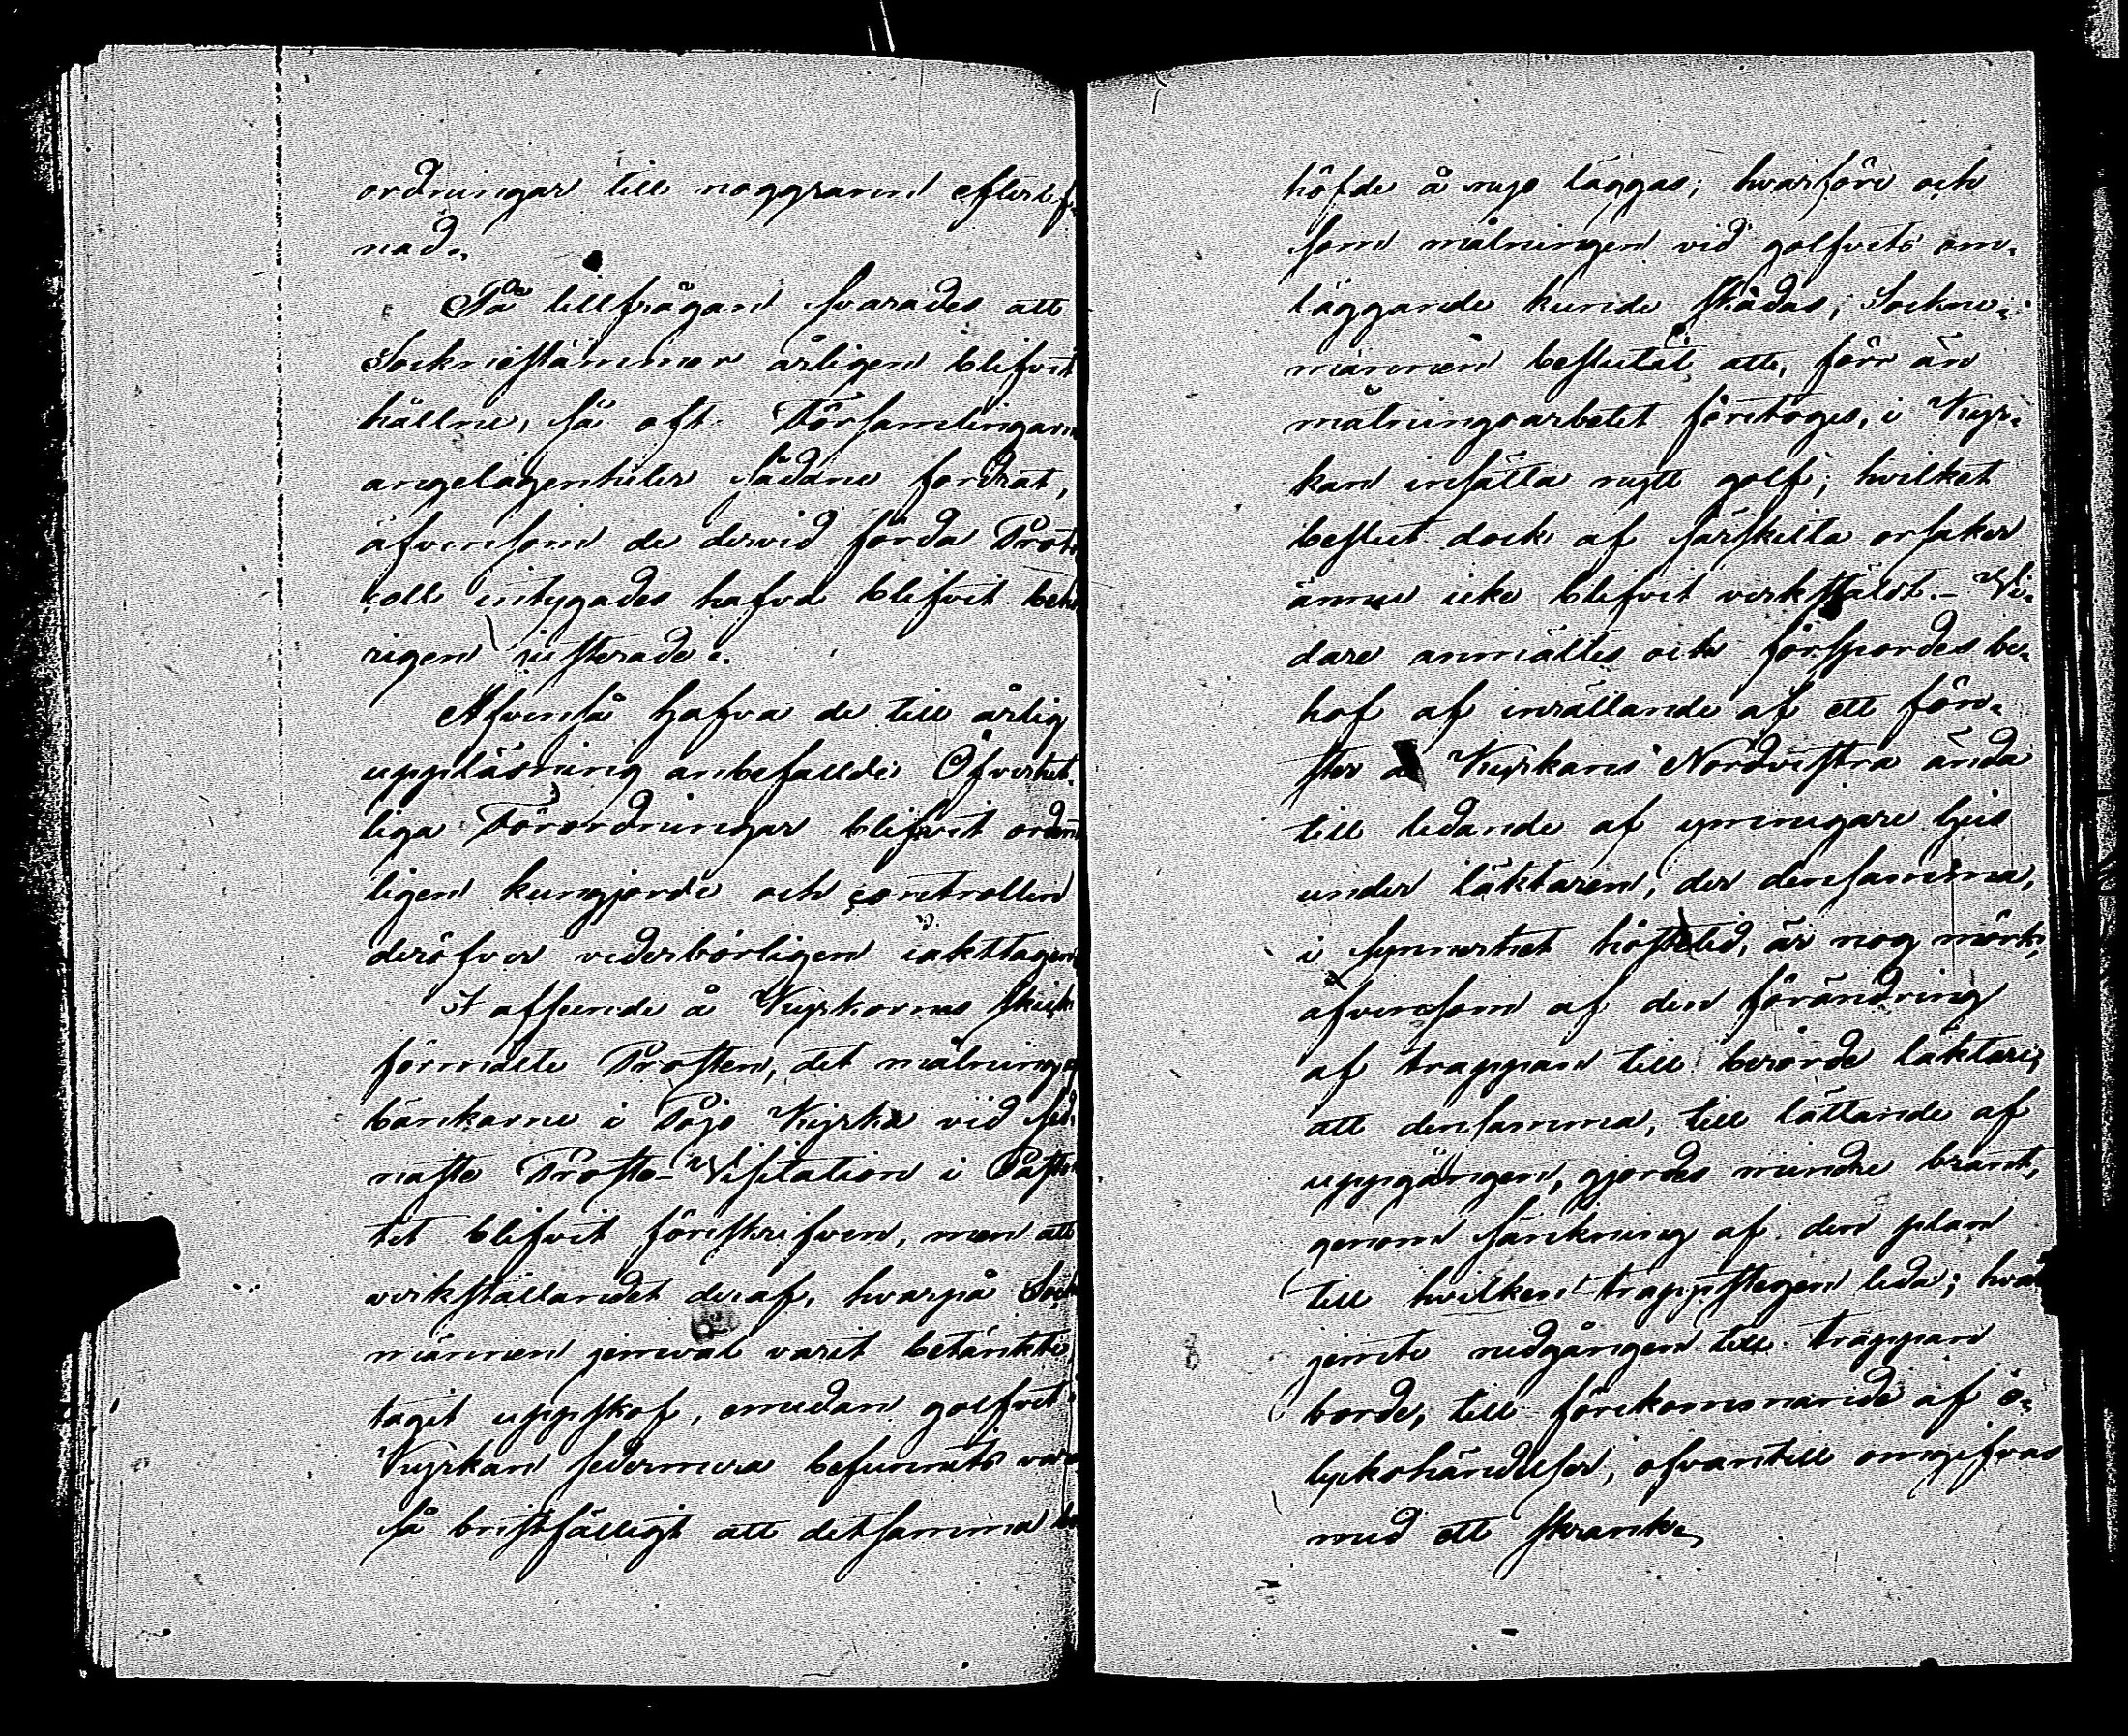 ordningar till noggrann efterlef-
nad.
På tillfrågan svarades att
Socknestämmor årligen blifvit
hållne, så oft Församlingarne
angelägenheter sådane fordrat,
äfvensom de dervid förda Proto
koll intygades hafva blifvit behö
rigen justerade.
Äfvenså hafva de till årlig
uppläsning anbefallde Öfverhet-
liga Förordningar blifvit ordent
ligen kungjorde och controllen
deröfver vederbörligen iakttagen
I afseende å Kyrkornes skick
förmälte Prosten, det målning a
bänkarne i Pojo Kyrka vid sed-
naste Prosts-Visitation i Pasto
tet blifvit föreskrifven, men att
verkställandet deraf, hvarpå Sock
männen jemväl varit betänkte,
tagit uppskof, emedan golfvet i
Kyrkan sedermera befunnits vara
så bristfälligt att detsamma be
höfde å nyo läggas; hvarföre och
som målningen vid golfvets om-
läggande kunde skadas, Sockne-
männen beslutat, att, förr än
målningsarbetet företoges, i Kyr-
kan insätta nytt golf; hvilket
beslut dock af särskilta orsaker
ännu icke blifvit verkstäldt. - Vi-
dare anmältes och förspordes be-
hof af inrättande af ett fön-
ster å Kyrkans Nordvestra ända
till ledande af ymnigare ljus
under läktaren, der densamma,
i synnerhet hösttid, är nog mörk,
äfvensom af den förändring
af trappan till berörde läktare,
att densamma, till lättande af
uppgången, gjordes mindre brant,
genom sänkning af den plan
till hvilken trappstegen leda; hvar
jemte nedgången till trappan
borde, till förekommande af o-
lyckshändelser, ofvantill omgifvas
med ett skrank.